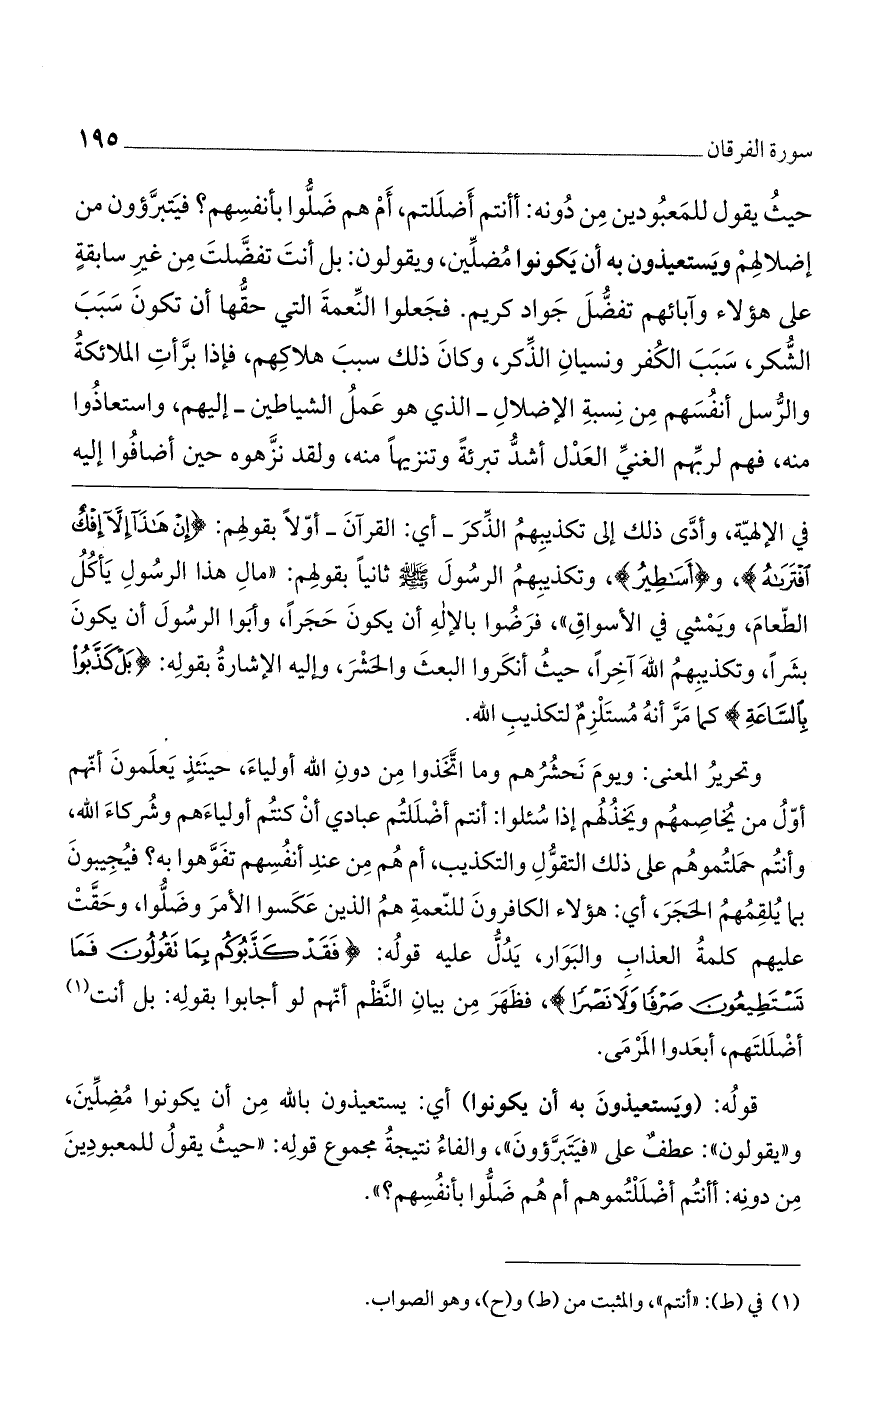 سورة الفرقان ١٩٥
حيثُ يقول للمَعبُودين مِن دُونه: أأنتم أَضلَلتم، أَمْ هم ضَلُّوا بأنفسِهم؟ فيَتبرَّؤون من
إضلالهِمْ ويَستعيذون به أن يَكونوا مُضلِّين، ويقولون: بل أنتَ تفضَّلتَ مِن غيرِ سابقةٍ
على هؤلاء وآبائهم تفضُّلَ جَواد كريم. فجَعلوا النِّعمةَ التي حقُّها أن تكونَ سَبَبَ
الشُّكر، سَبَبَ الكُفر ونسيانِ الذِّكر، وكانَ ذلك سببَ هلاكِهم، فإذا برَّأتِ الملائكةُ
والرُّسل أنفُسَهم مِن نِسبةِ الإضلالِ ـ الذي هو عَملُ الشياطين ـ إليهم، واستعاذُوا
منه، فهم لربِّهم الغنيِّ العَدْل أشدُّ تبرئةً وتنزيهاً منه، ولقد نزَّهوه حين أضافُوا إليه
في الإلهيّة، وأدَّى ذلك إلى تكذيبِهمُ الذِّكرَ ـ أي: القرآنَ ـ أوّلاً بقولهِم: ﴿إِنْ هَٰذَآ إِلَّآ إِفْكٌ
ٱفْتَرَىٰهُ﴾، و﴿أَسَٰطِيرُ﴾، وتكذيبِهمُ الرسُولَ ﷺ ثانياً بقولهِم: «مالِ هذا الرسُولِ يَأكُلُ
الطّعامَ، ويَمْشي في الأسواقِ»، فرَضُوا بالإلٰهِ أن يكونَ حَجَراً، وأبَوا الرسُولَ أن يكونَ
بشَراً، وتكذيبِهمُ اللهَ آخِراً، حيثُ أنكَروا البعثَ والحَشْرَ، وإليه الإشارةُ بقولِه: ﴿بَلْ كَذَّبُوا۟
بِٱلسَّاعَةِ﴾ كما مَرَّ أنهُ مُستَلْزِمٌ لتكذيبِ الله.
وتحريرُ المعنى: ويومَ نَحشُرُهم وما اتَّخَذوا مِن دونِ الله أولياءَ، حينَئذٍ يَعلَمونَ أنّهم
أوّلُ من يُخاصِمهُم ويَخذُلُهم إذا سُئلوا: أنتم أضْلَلتُم عبادي أنْ كنتُم أولياءَهم وشُركاءَ الله،
وأنتُم حمَلتُموهُم على ذلك التقوُّلِ والتكذيب، أم هُم مِن عندِ أنفُسِهم تفَوَّهوا به؟ فيُجِيبونَ
بما يُلقِمُهمُ الحَجَرَ، أي: هؤلاء الكافرونَ للنّعمةِ همُ الذين عَكَسوا الأمرَ وضَلُّوا، وحَقَّتْ
عليهم كلمةُ العذابِ والبَوَار، يَدُلُّ عليه قولُه: ﴿فَقَدْ كَذَّبُوكُم بِمَا تَقُولُونَ فَمَا
تَسْتَطِيعُونَ صَرْفًا وَلَا نَصْرًا﴾، فظَهَرَ مِن بيانِ النَّظْم أنّهم لو أجابوا بقولِه: بل أنت(١)
أضْلَلتَهم، أبعَدوا المَرْمَى.
قولُه: (ويَستعيذونَ به أن يكونوا) أي: يستعيذون بالله مِن أن يكونوا مُضِلِّينَ،
و«يقولون»: عطفٌ على «فيَتَبرَّؤونَ»، والفاءُ نتيجةُ مجموع قولِه: «حيثُ يقولُ للمعبودِينَ
مِن دونِه: أأنتُم أضْلَلْتُموهم أم هُم ضَلُّوا بأنفُسِهم؟».
(١) في (ط): «أنتم»، والمثبت من (ط) و(ح)، وهو الصواب.